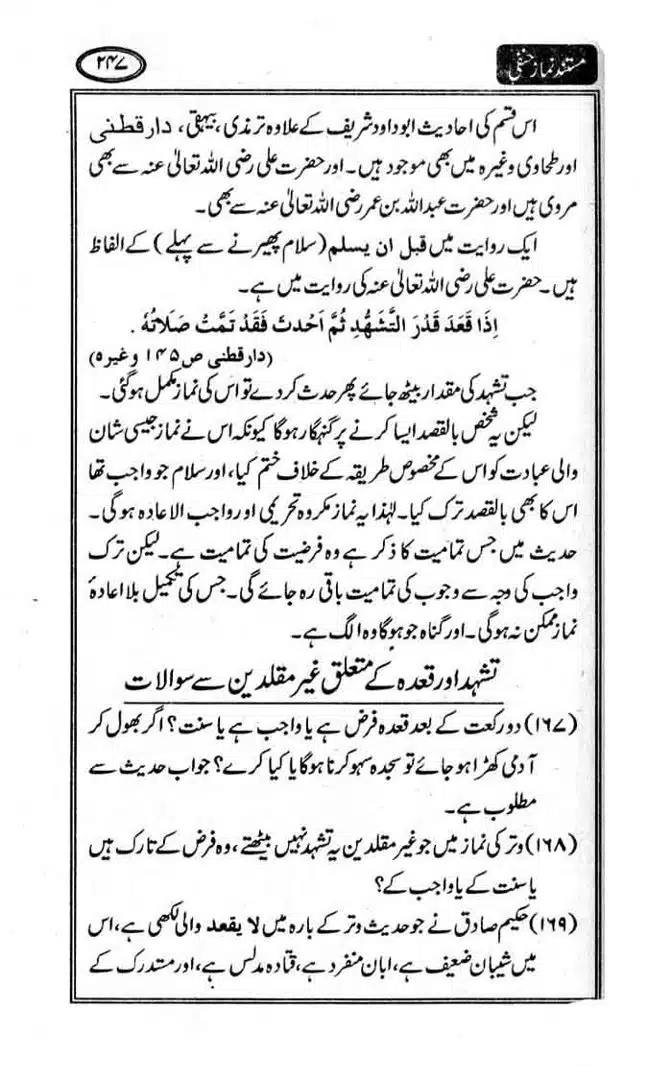 ۲۴۷
مستند نماز حنفی
اس قسم کی احادیث ابوداود شریف کے علاوہ ترمذی، بیہقی، دارقطنی
اور طحاوی وغیرہ میں بھی موجود ہیں۔ اور حضرت علی رضی اللہ تعالیٰ عنہ سے بھی
مروی ہیں اور حضرت عبداللہ بن عمر رضی اللہ تعالیٰ عنہ سے بھی۔
ایک روایت میں قبل ان یسلم (سلام پھیرنے سے پہلے) کے الفاظ
ہیں۔ حضرت علی رضی اللہ تعالیٰ عنہ کی روایت میں ہے۔
اِذَا قَعَدَ قَدْرَ التَّشَهُّدِ ثُمَّ اَحْدَثَ فَقَدْ تَمَّتْ صَلَاتُهٗ .
(دارقطنی ص ۱۴۵ وغیرہ)
جب تشہد کی مقدار بیٹھ جائے پھر حدث کر دے تو اس کی نماز مکمل ہو گئی۔
لیکن یہ شخص بالقصد ایسا کرنے پر گنہگار ہوگا کیونکہ اس نے نماز جیسی شان
والی عبادت کو اس کے مخصوص طریقہ کے خلاف ختم کیا، اور سلام جو واجب تھا
اس کا بھی بالقصد ترک کیا۔ لہٰذا یہ نماز مکروہ تحریمی اور واجب الاعادہ ہوگی۔
حدیث میں جس تمامیت کا ذکر ہے وہ فرضیت کی تمامیت ہے۔ لیکن ترک
واجب کی وجہ سے وجوب کی تمامیت باقی رہ جائے گی۔ جس کی تکمیل بلا اعادۂ
نماز ممکن نہ ہوگی۔ اور گناہ جو ہوگا وہ الگ ہے۔
تشہد اور قعدہ کے متعلق غیر مقلدین سے سوالات
(۱۶۷) دو رکعت کے بعد قعدہ فرض ہے یا واجب ہے یا سنت؟ اگر بھول کر
آدمی کھڑا ہو جائے تو سجدہ سہو کرنا ہوگا یا کیا کرے؟ جواب حدیث سے
مطلوب ہے۔
(۱۶۸) وتر کی نماز میں جو غیر مقلدین یہ تشہد نہیں بیٹھتے، وہ فرض کے تارک ہیں
یا سنت کے یا واجب کے؟
(۱۶۹) حکیم صادق نے جو حدیث وتر کے بارہ میں لا یقعد والی لکھی ہے، اس
میں شیبان ضعیف ہے، ابان منفرد ہے، قتادہ مدلس ہے، اور مستدرک کے